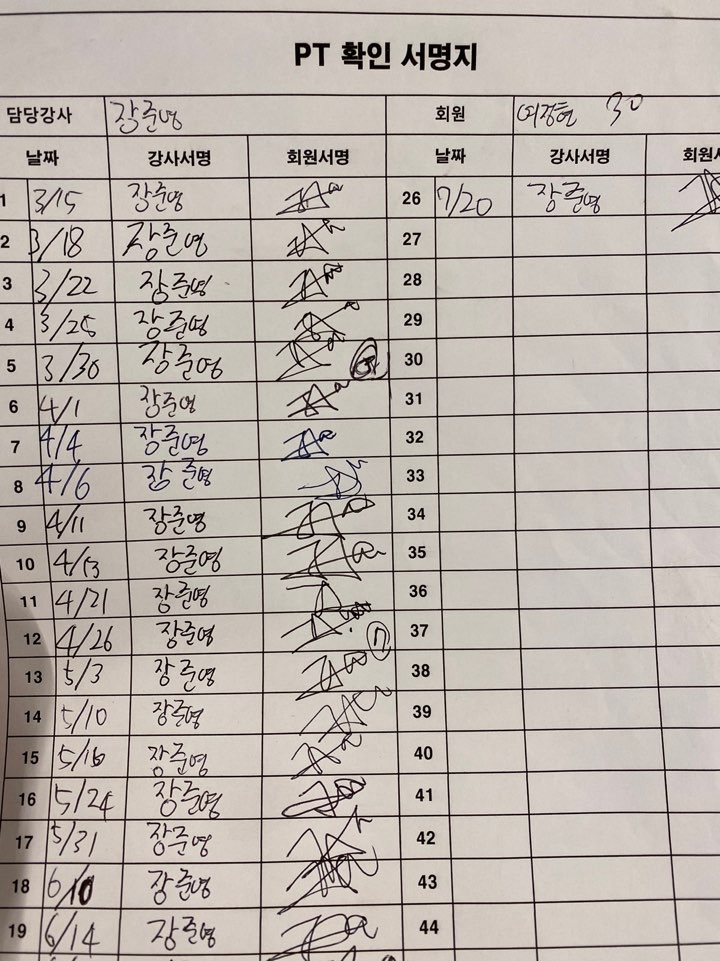 PT 확인 서명지
담당강사 장준영 회원 여정현 30
날짜 강사서명 회원서명 날짜 강사서명 회원
1 3/15 장준영 26 7/20 장준영
2 3/18 장준영 27
3 3/22 장준영 28
4 3/25 장준영 29
5 3/30 장준영 30
6 4/1 장준영 31
7 4/4 장준영 32
8 4/6 장준영 33
9 4/11 장준영 34
10 4/13 장준영 35
11 4/21 장준영 36
12 4/26 장준영 37
13 5/3 장준영 38
14 5/10 장준영 39
15 5/16 장준영 40
16 5/24 장준영 41
17 5/31 장준영 42
18 6/10 장준영 43
19 6/14 장준영 44